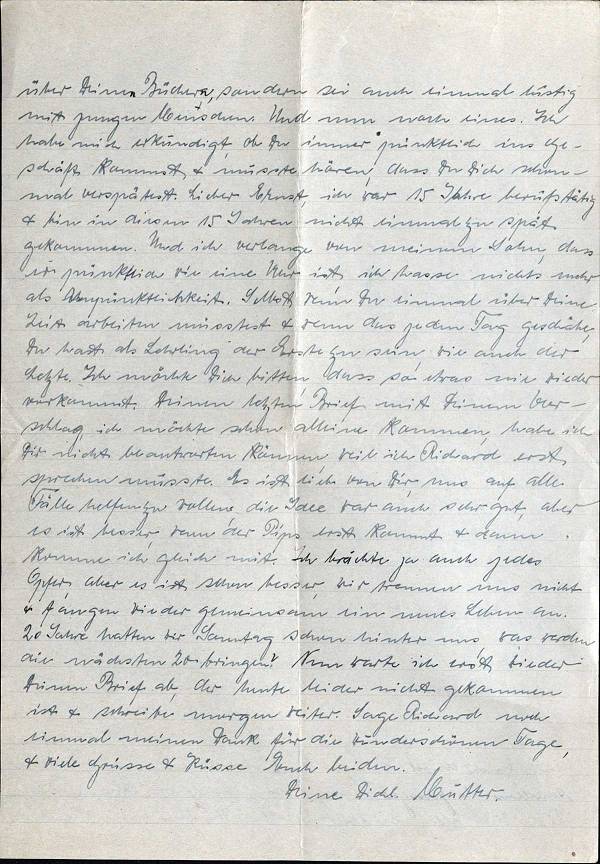 über Deinen Büchern, sondern sei auch einmal lustig
mit jungen Menschen. Und nun noch eines. Ich
habe mich erkundigt, ob Du immer pünktlich ins Ge-
schäft kommst & musste hören, dass Du Dich schon-
mal verspätest. Lieber Ernst, ich war 15 Jahre berufstätig
& bin in diesen 15 Jahren nicht einmal zu spät
gekommen. Und ich verlange von meinem Sohn, dass
er pünktlich wie eine Uhr ist, ich hasse nichts mehr
als Unpünktlichkeit. Selbst wenn Du einmal über Deine
Zeit arbeiten müsstest & wenn das jeden Tag geschähe,
Du hast als Lehrling der Erste zu sein, wie auch der
Letzte. Ich möchte Dich bitten, dass so etwas nie wieder
vorkommt. Deinen letzten Brief mit Deinem Vor-
schlag, ich möchte schon alleine kommen, habe ich
Dir nicht beantworten können, weil ich Richard erst
sprechen musste. Es ist lieb von Dir, uns auf alle
Fälle helfen zu wollen, die Idee war auch sehr gut, aber
es ist besser, wenn der Pips erst kommt & dann
komme ich gleich mit. Ich brächte ja auch jedes
Opfer, aber es ist schon besser, wir trennen uns nicht
& fangen wieder gemeinsam ein neues Leben an.
20 Jahre hatten wir Sonntag schon hinter uns, was werden
die nächsten 20 bringen? Nun warte ich erst wieder
Deinen Brief ab, der heute leider nicht gekommen
ist & schreibe morgen weiter. Sage Richard noch
einmal meinen Dank für die wunderschönen Tage,
& viele Grüsse & Küsse Euch beiden.
Deine Dich l. Mutter.